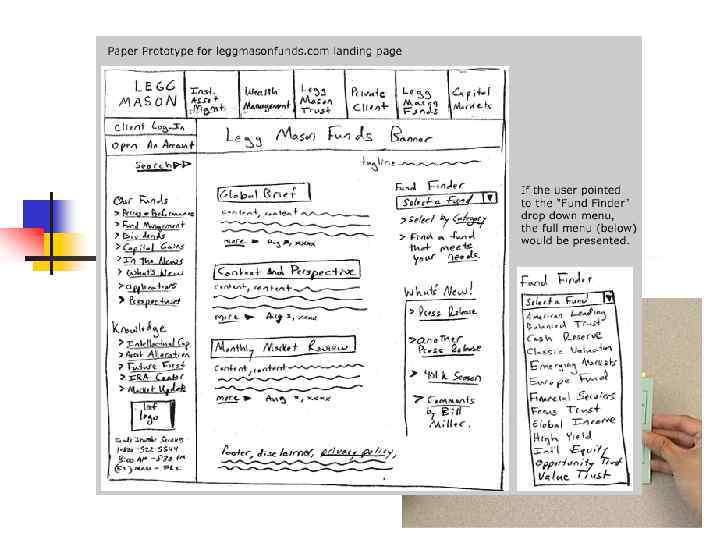 Paper Prototype for leggmasonfunds.com landing page
LEGG
MASON
Inst.
Asset
Mgmt.
Wealth
Management
Legg
Mason
Trust
Private
Client
Legg
Mason
Funds
Capital
Markets
Client Log-In
Open An Account
Search
Legg Mason Funds Banner
tagline
Our Funds
> Price + Performance
> Fund Management
> Dividends
> Capital Gains
> In The News
> What's New
> Applications
> Perspectives
Knowledge
> Intellectual Cap
> Asset Allocation
> Future First
> IRA Center
> Market Update
logo
Global Brief
content, content
more Aug 2, xxxx
Content and Perspective
content, content
more Aug 2, xxxx
Monthly Market Review
content, content
more Aug 2, xxxx
Footer, disclaimer, privacy policy,
Fund Finder
Select a Fund
> Select by Category
> Find a fund
that meets
your needs.
What's New!
> Press Release
> Another
Press Release
> Season
> Comments
by Bill
Miller.
If the user pointed
to the "Fund Finder"
drop down menu,
the full menu (below)
would be presented.
Fund Finder
Select a Fund
American Leading
Balanced Trust
Cash Reserve
Classic Valuation
Emerging Markets
Europe Fund
Financial Services
Focus Trust
Global Income
High Yield
Int'l Equity
Opportunity Trust
Value Trust